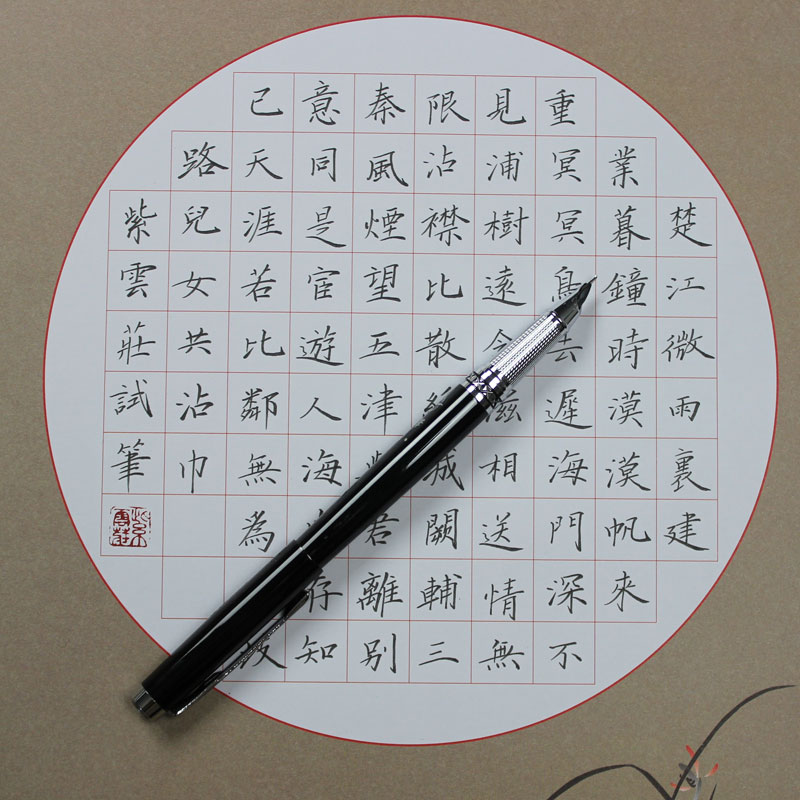 楚江微雨裏建
業暮鐘時漠漠帆來
重冥冥鳥去遲海門深不
見浦樹遠含滋相送情無
限沾襟比散城闕輔三
秦風煙望五津君離別
意同是宦遊人海存知
己天涯若比鄰無為
路兒女共沾巾
紫雲莊試筆
紫雲莊